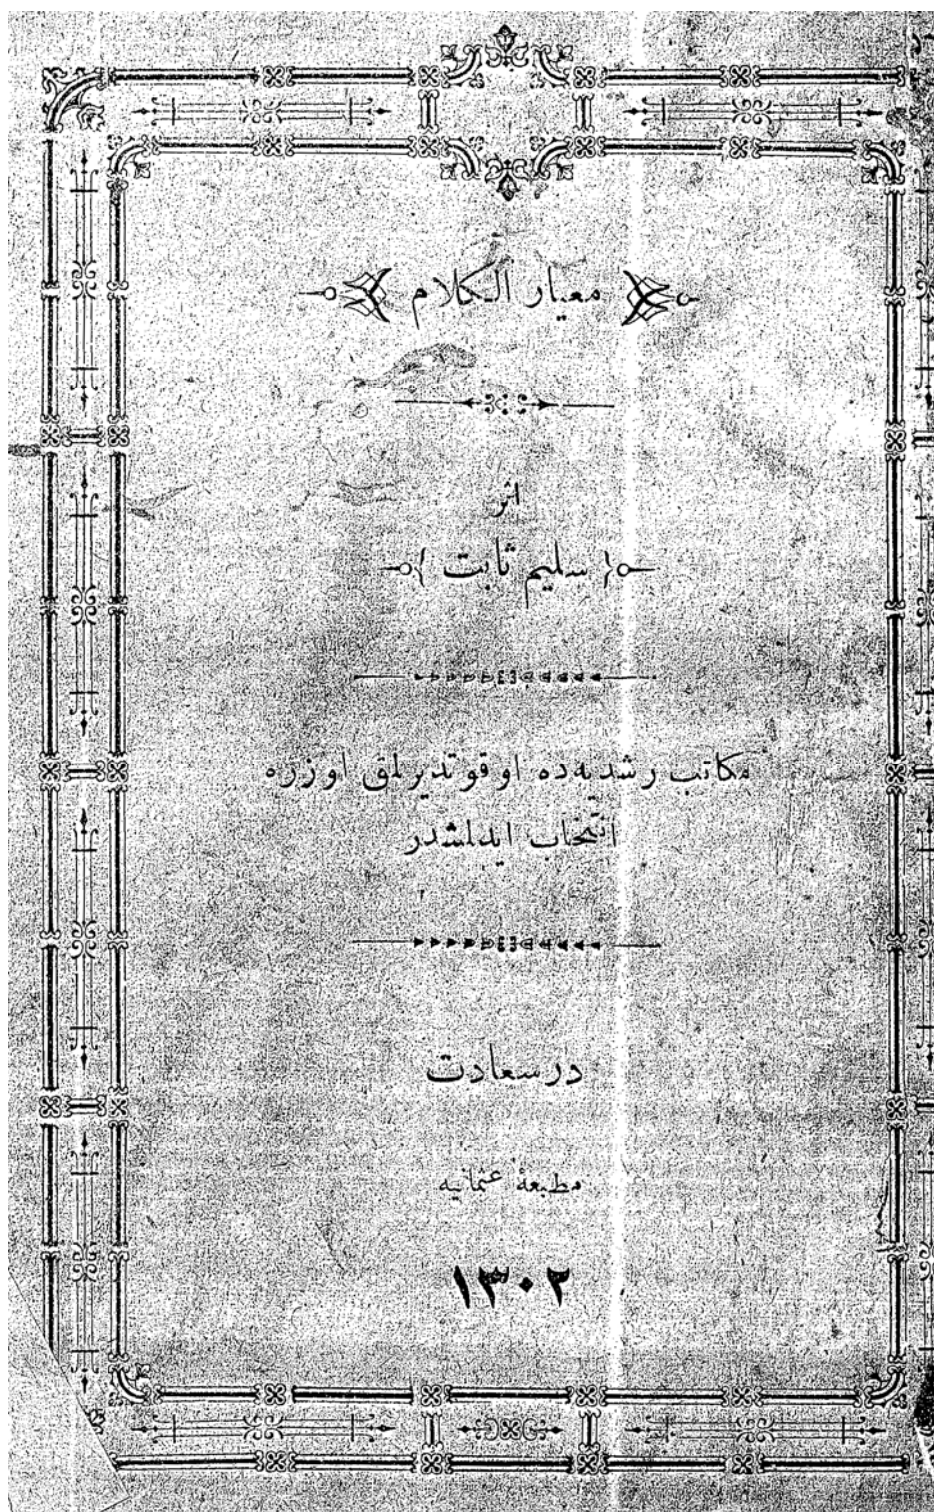 معيار الكلام
اثر
{ سليم ثابت }
مكاتب رشديه‌ده اوقوتديرلمق اوزره
انتخاب ايدلمشدر
درسعادت
مطبعهٔ عثمانيه
١٣٠٢